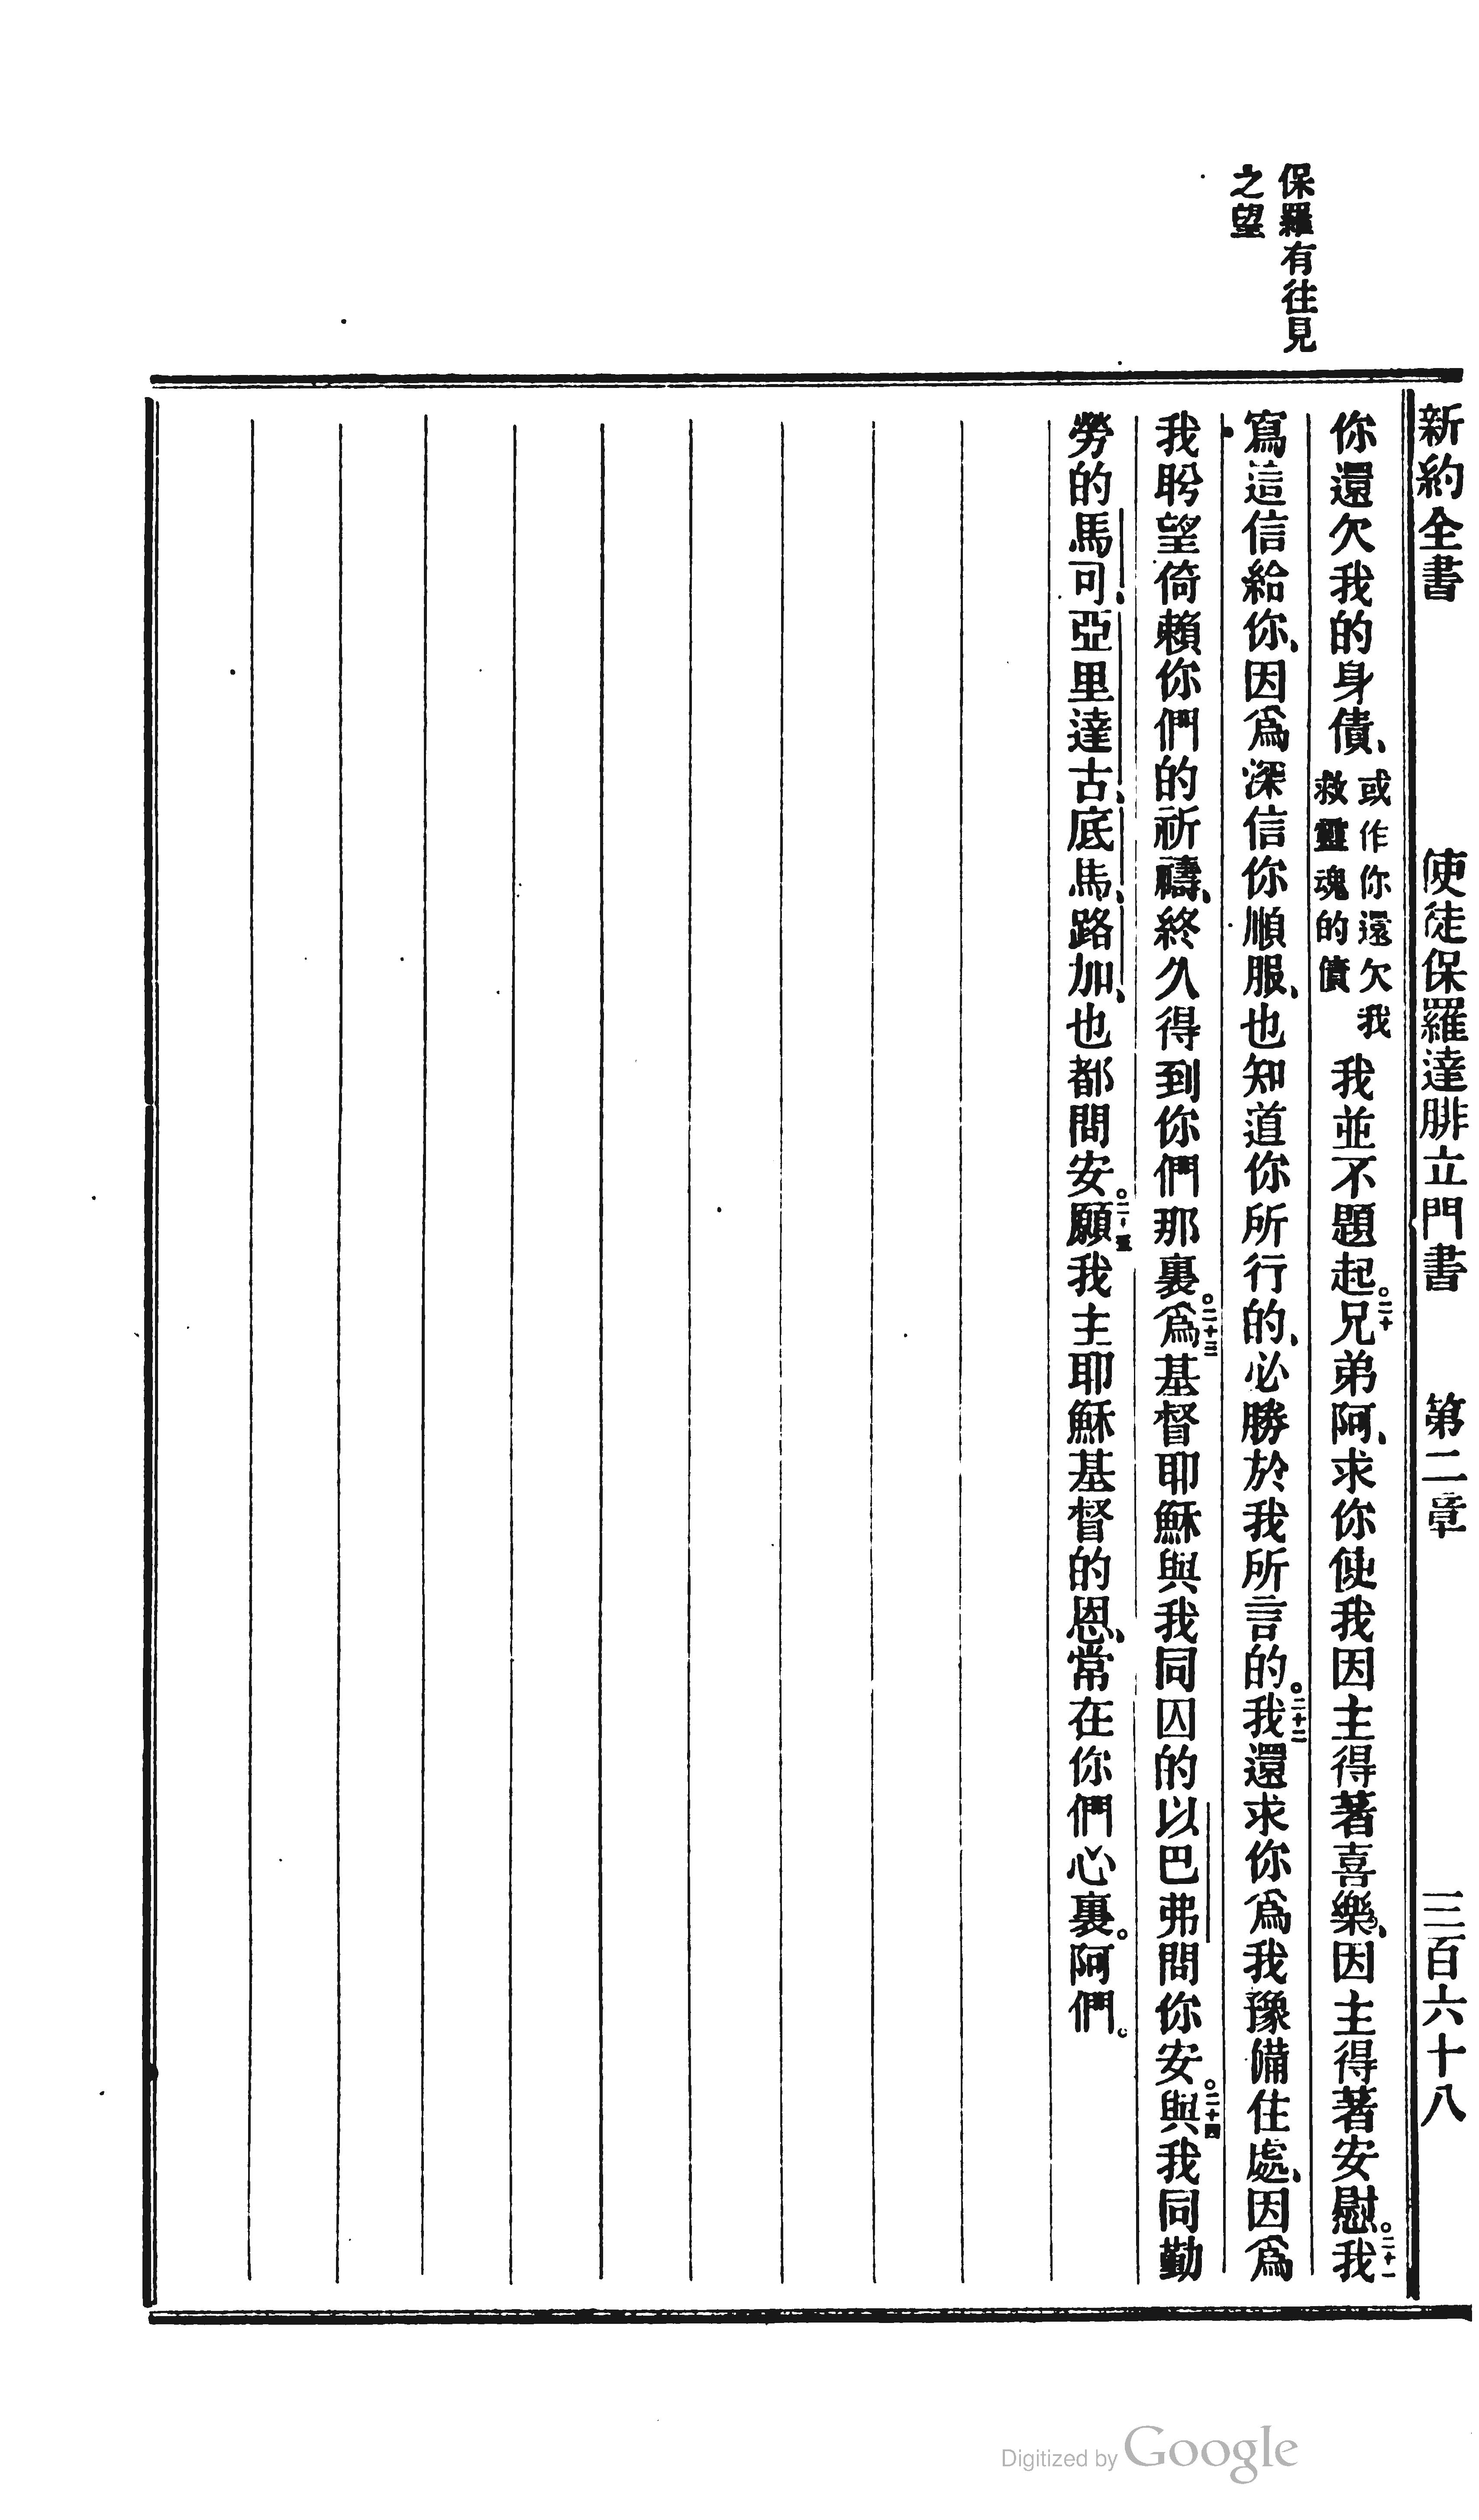 新約全書 使徒保羅達腓立門書 第二章 三百六十八
保羅有往見
之望
你還欠我的身債、或作你還欠我救靈魂的債我並不題起。二十兄弟阿、求你使我因主得著喜樂、因主得著安慰。二十一我
寫這信給你、因爲深信你順服、也知道你所行的、必勝於我所言的。二十二我還求你爲我豫備住處、因爲
我盼望倚賴你們的祈禱、終久得到你們那裏。二十三爲基督耶穌與我同囚的以巴弗問你安。二十四與我同勤
勞的馬可、亞里達古、底馬、路加、也都問安。二十五願我主耶穌基督的恩、常在你們心裏。阿們。
Digitized by Google